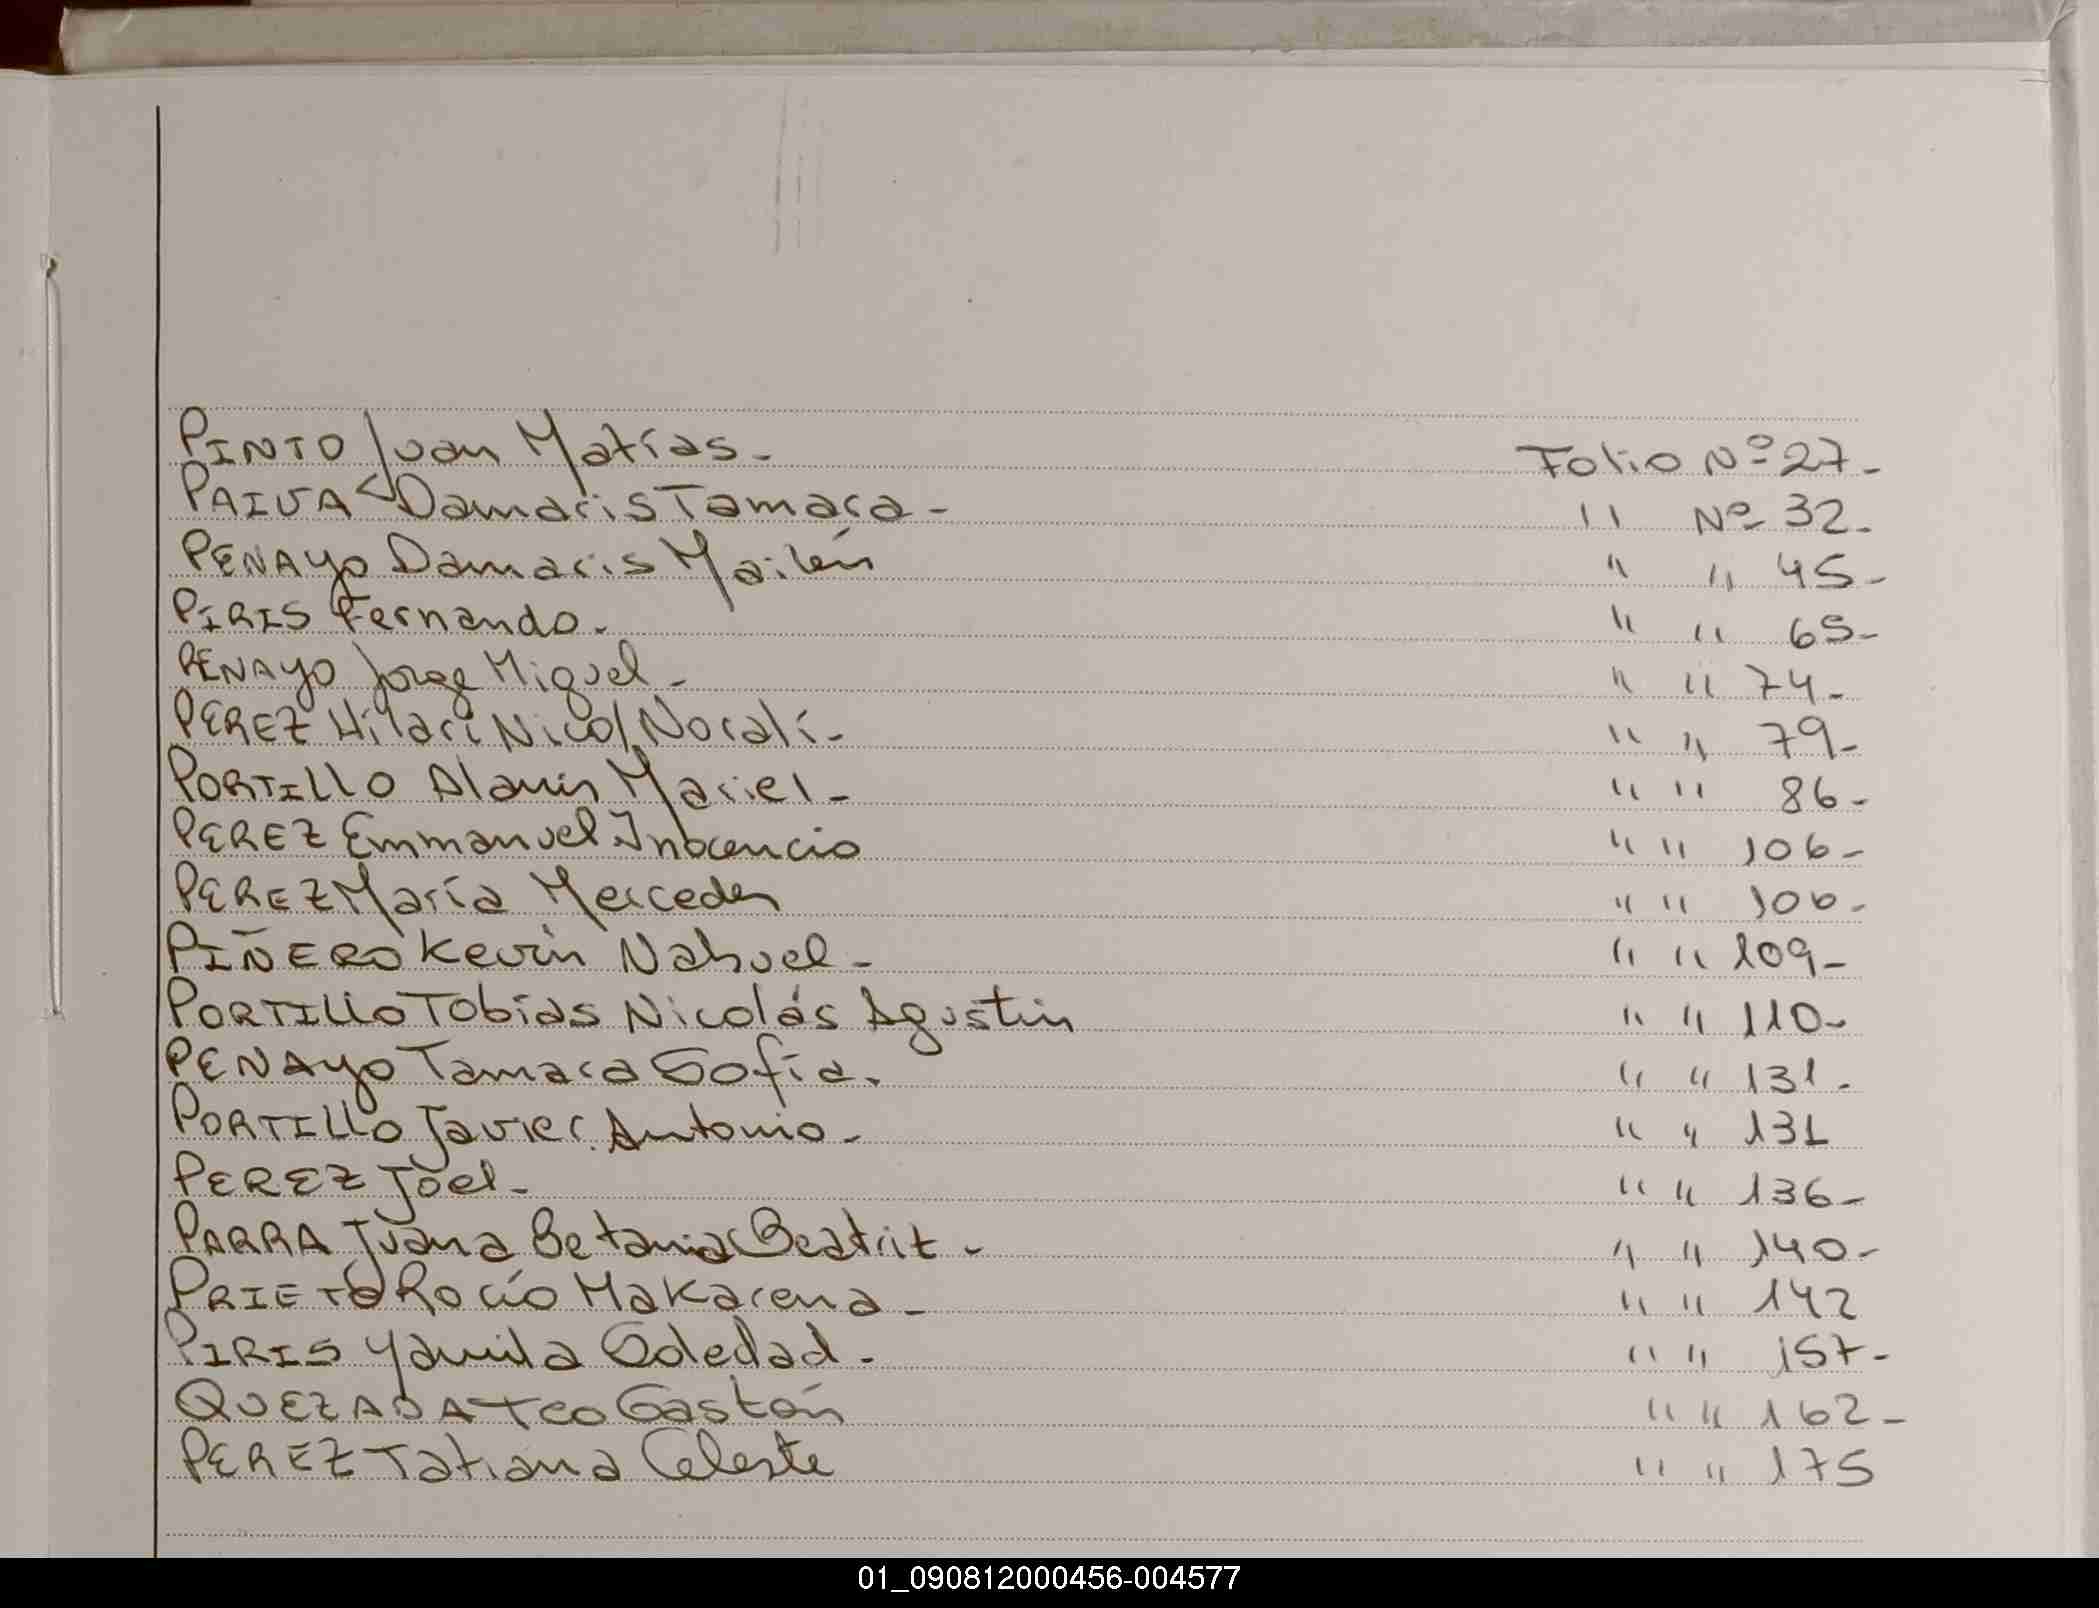 PINTO Juan Matías- Folio Nº 27-
PAIVA Damaris Tamara- " Nº 32-
PENAYO Damaris Mailén " " 45-
PIRIS Fernando- " " 65-
PENAYO Jorge Miguel- " " 74-
PEREZ Hilari Nicol Noralí- " " 79-
PORTILLO Alanis Mariel- " " 86-
PEREZ Emmanuel Inocencio " " 106-
PEREZ María Mercedes " " 106-
PIÑERO Kevin Nahuel- " " 109-
PORTILLO Tobías Nicolás Agustín " " 110-
PENAYO Tamara Sofía. " " 131-
PORTILLO Javier Antonio- " " 131
PEREZ Joel- " " 136-
PARRA Juana Betania Beatriz- " " 140-
PRIETO Rocío Makarena- " " 142
PIRIS Yamila Soledad- " " 157-
QUEZADA Teo Gastón " " 162-
PEREZ Tatiana Celeste " " 175
01_090812000456-004577